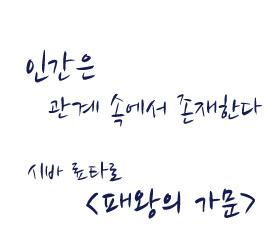 인간은
관계 속에서 존재한다
시바 료타로
<패왕의 가문>